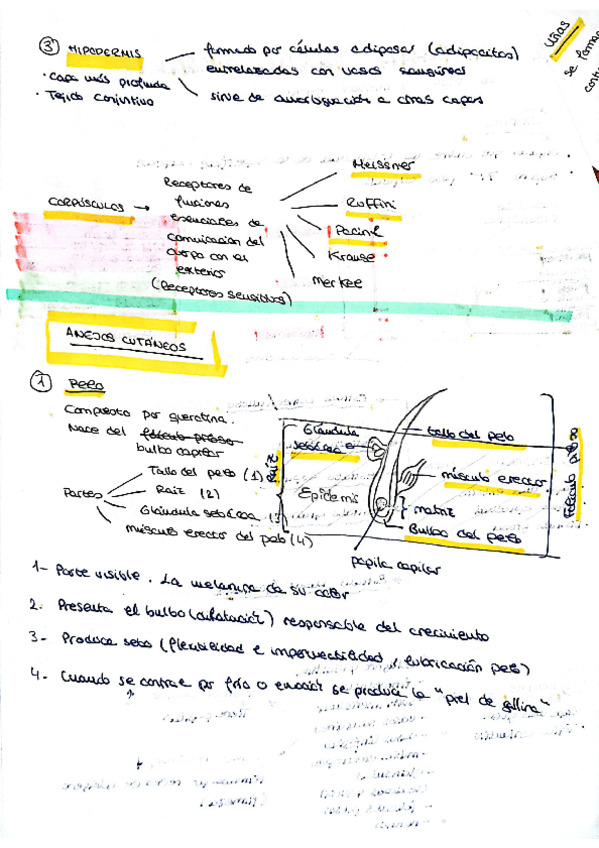 3º HIPODERMIS
formado por células adiposas (adipocitos)
entrelazadas con vasos sanguíneos
· Capa más profunda
· Tejido conjuntivo
sirve de amortiguación a otras capas
Uñas
se forma
CORPÚSCULOS → Receptores de
funciones
esenciales de
comunicación del
cuerpo con el
exterior
(Receptores sensitivos)
Meissner
Ruffini
Pacini
Krause
Merkel
ANEJOS CUTÁNEOS
1 PELO
Compuesto por queratina.
Nace del folículo piloso
bulbo capilar
Partes
Tallo del pelo (1)
Raíz (2)
Glándula sebácea (3
músculo erector del pelo (4)
Glándula
sebácea
Raíz
Epidemis
tallo del pelo
músculo erector
matriz
Bulbo del pelo
papila capilar
Folículo piloso
1- Parte visible. La melanina da su color
2- Presenta el bulbo (dilatación) responsable del crecimiento
3- Produce sebo (flexibilidad e impermeabilidad, lubricación pelo)
4- Cuando se contrae por frío o emoción se produce la "piel de gallina"